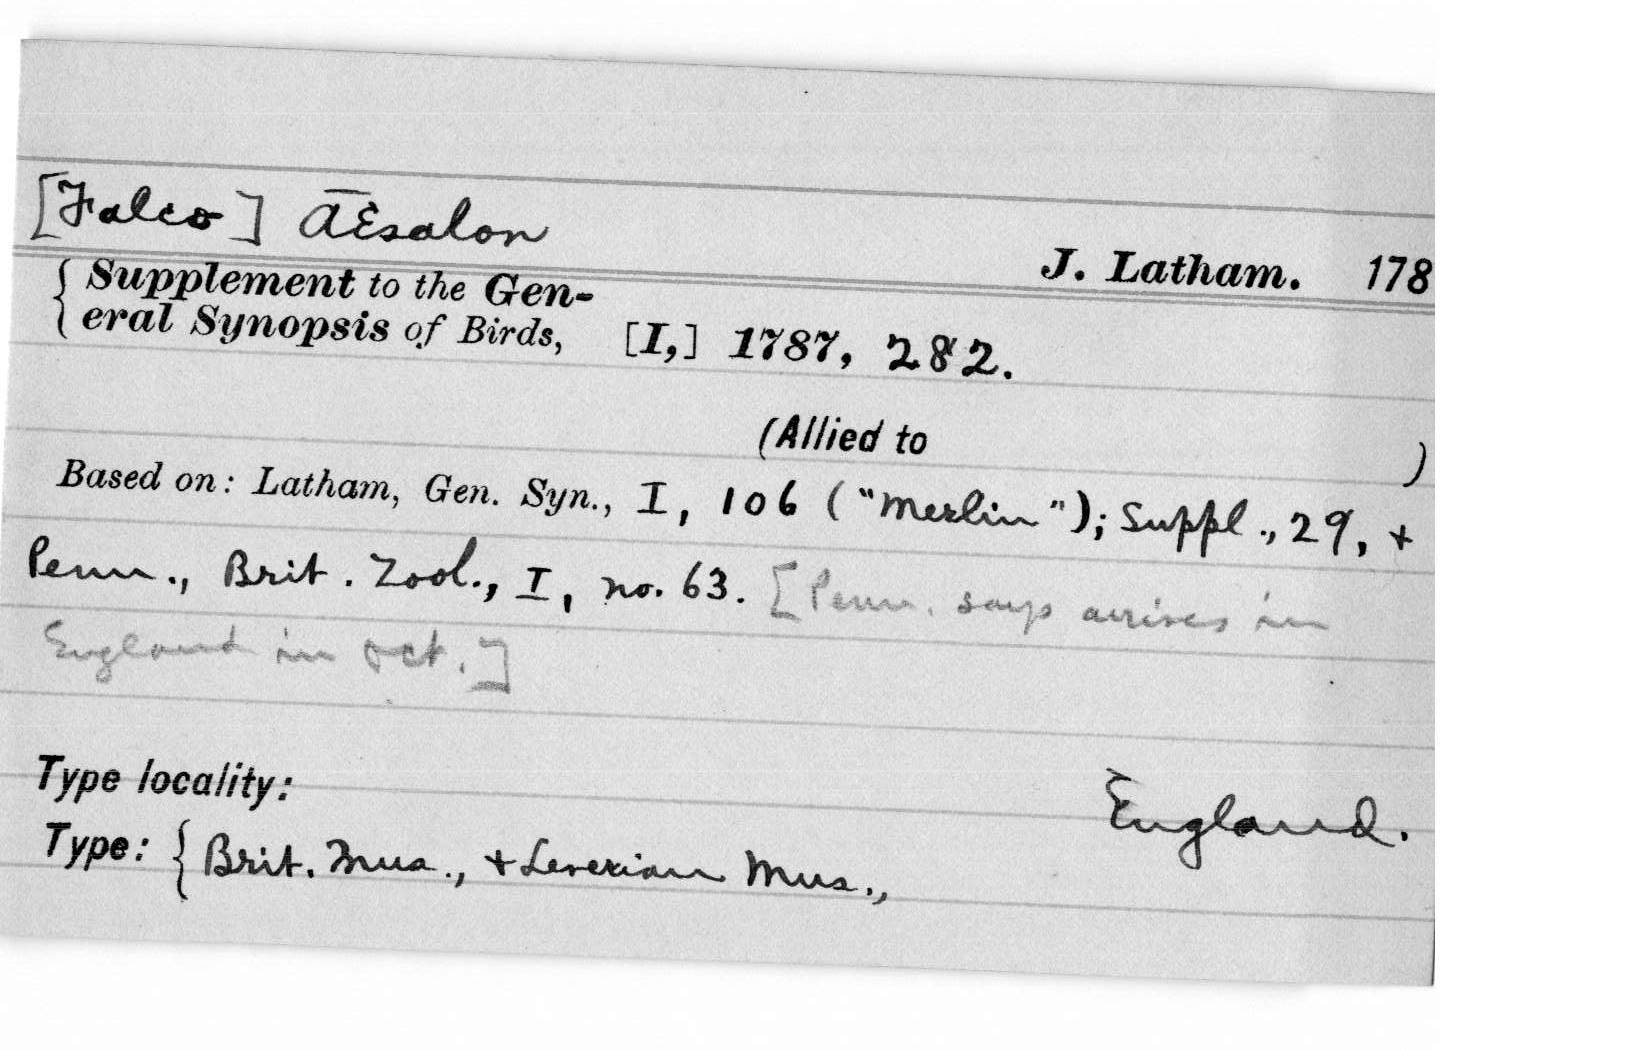 [Falco] Æsalon
J. Latham. 178
{Supplement to the Gen-
eral Synopsis of Birds, [I,] 1787, 282.
(Allied to )
Based on: Latham, Gen. Syn., I, 106 ("Merlin"); Suppl., 29, +
Penn., Brit. Zool., I, no. 63. [Penn. says arrives in
England in Oct.]
Type locality: England.
Type: {Brit. Mus., + Leverian Mus.,